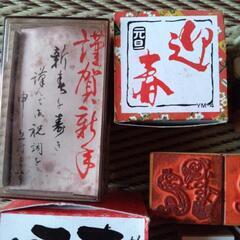 謹賀新年
新春を寿ぎ
謹んで祝詞を
申し上げます
元旦
迎春